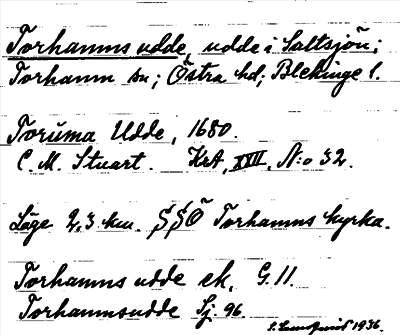 Torhamns udde, udde i Saltsjön;
Torhamn sn; Östra hd; Blekinge l.
Torŭma Udde, 1680.
C. M. Stuart. Krt. XVII, N:o 32.
Läge 2,3 km. SSÖ Torhamns kyrka.
Torhamns udde ek. G. 11.
Torhamnsudde Sj. 96.
1936.